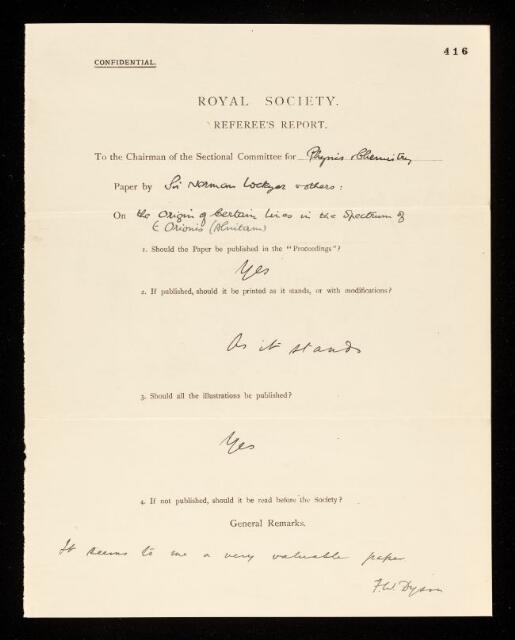 416
CONFIDENTIAL.
ROYAL SOCIETY.
REFEREE'S REPORT.
To the Chairman of the Sectional Committee for Physics & Chemistry
Paper by Sir Norman Lockyer & others:
On the Origin of Certain lines in the Spectrum of
ε Orionis (Alnitam)
1. Should the Paper be published in the "Proceedings"?
Yes
2. If published, should it be printed as it stands, or with modifications?
As it stands
3. Should all the illustrations be published?
Yes
4. If not published, should it be read before the Society?
General Remarks.
It seems to me a very valuable paper
F.W. Dyson